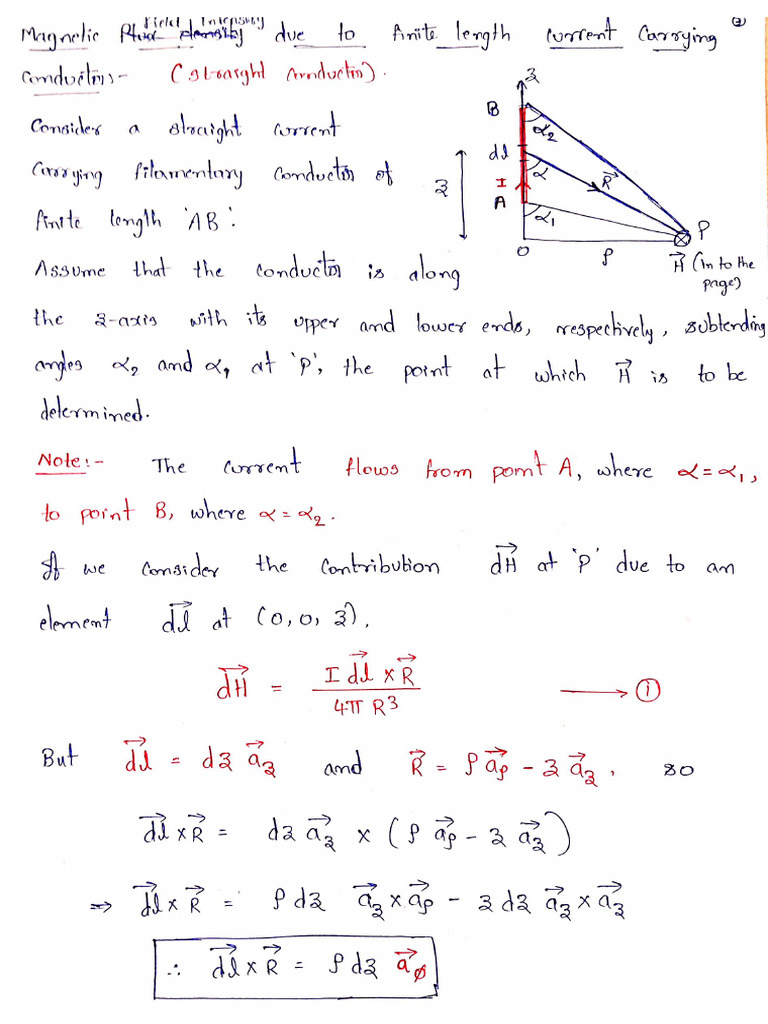 Field Intensity
Magnetic Flux density due to finite length current Carrying
②
conductor:- (straight conductor).
Consider a straight current
Carrying filamentary conductor of
finite length 'AB'.
Assume that the conductor is along
the z-axis with its upper and lower ends, respectively, subtending
angles α₂ and α₁ at 'P', the point at which H⃗ is to be
determined.
z
B
α₂
dl
α
R⃗
z
I
A
α₁
P
O
ρ
H⃗ (in to the
page)
Note:- The current flows from point A, where α=α₁,
to point B, where α=α₂.
If we consider the contribution dH⃗ at 'P' due to an
element dl⃗ at (0,0,z),
dH⃗ = I dl⃗ × R⃗ / 4π R³ → ①
But dl⃗ = dz a⃗z and R⃗ = ρ a⃗ρ - z a⃗z, so
dl⃗ × R⃗ = dz a⃗z × (ρ a⃗ρ - z a⃗z)
⇒ dl⃗ × R⃗ = ρ dz a⃗z × a⃗ρ - z dz a⃗z × a⃗z
∴ dl⃗ × R⃗ = ρ dz a⃗ø